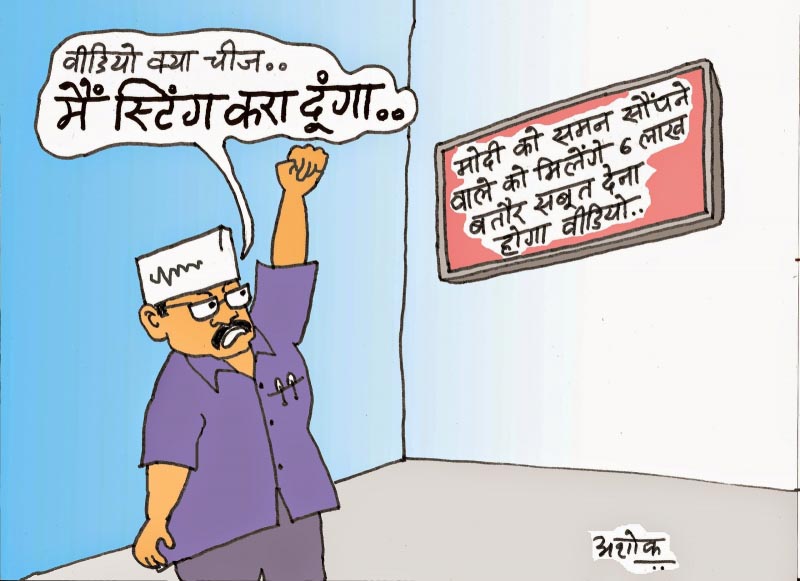 वीडियो क्या चीज..
मैं स्टिंग करा दूंगा..
मोदी को समन सौंपने
वाले को मिलेंगे 6 लाख
बतौर सबूत देना
होगा वीडियो..
अशोक